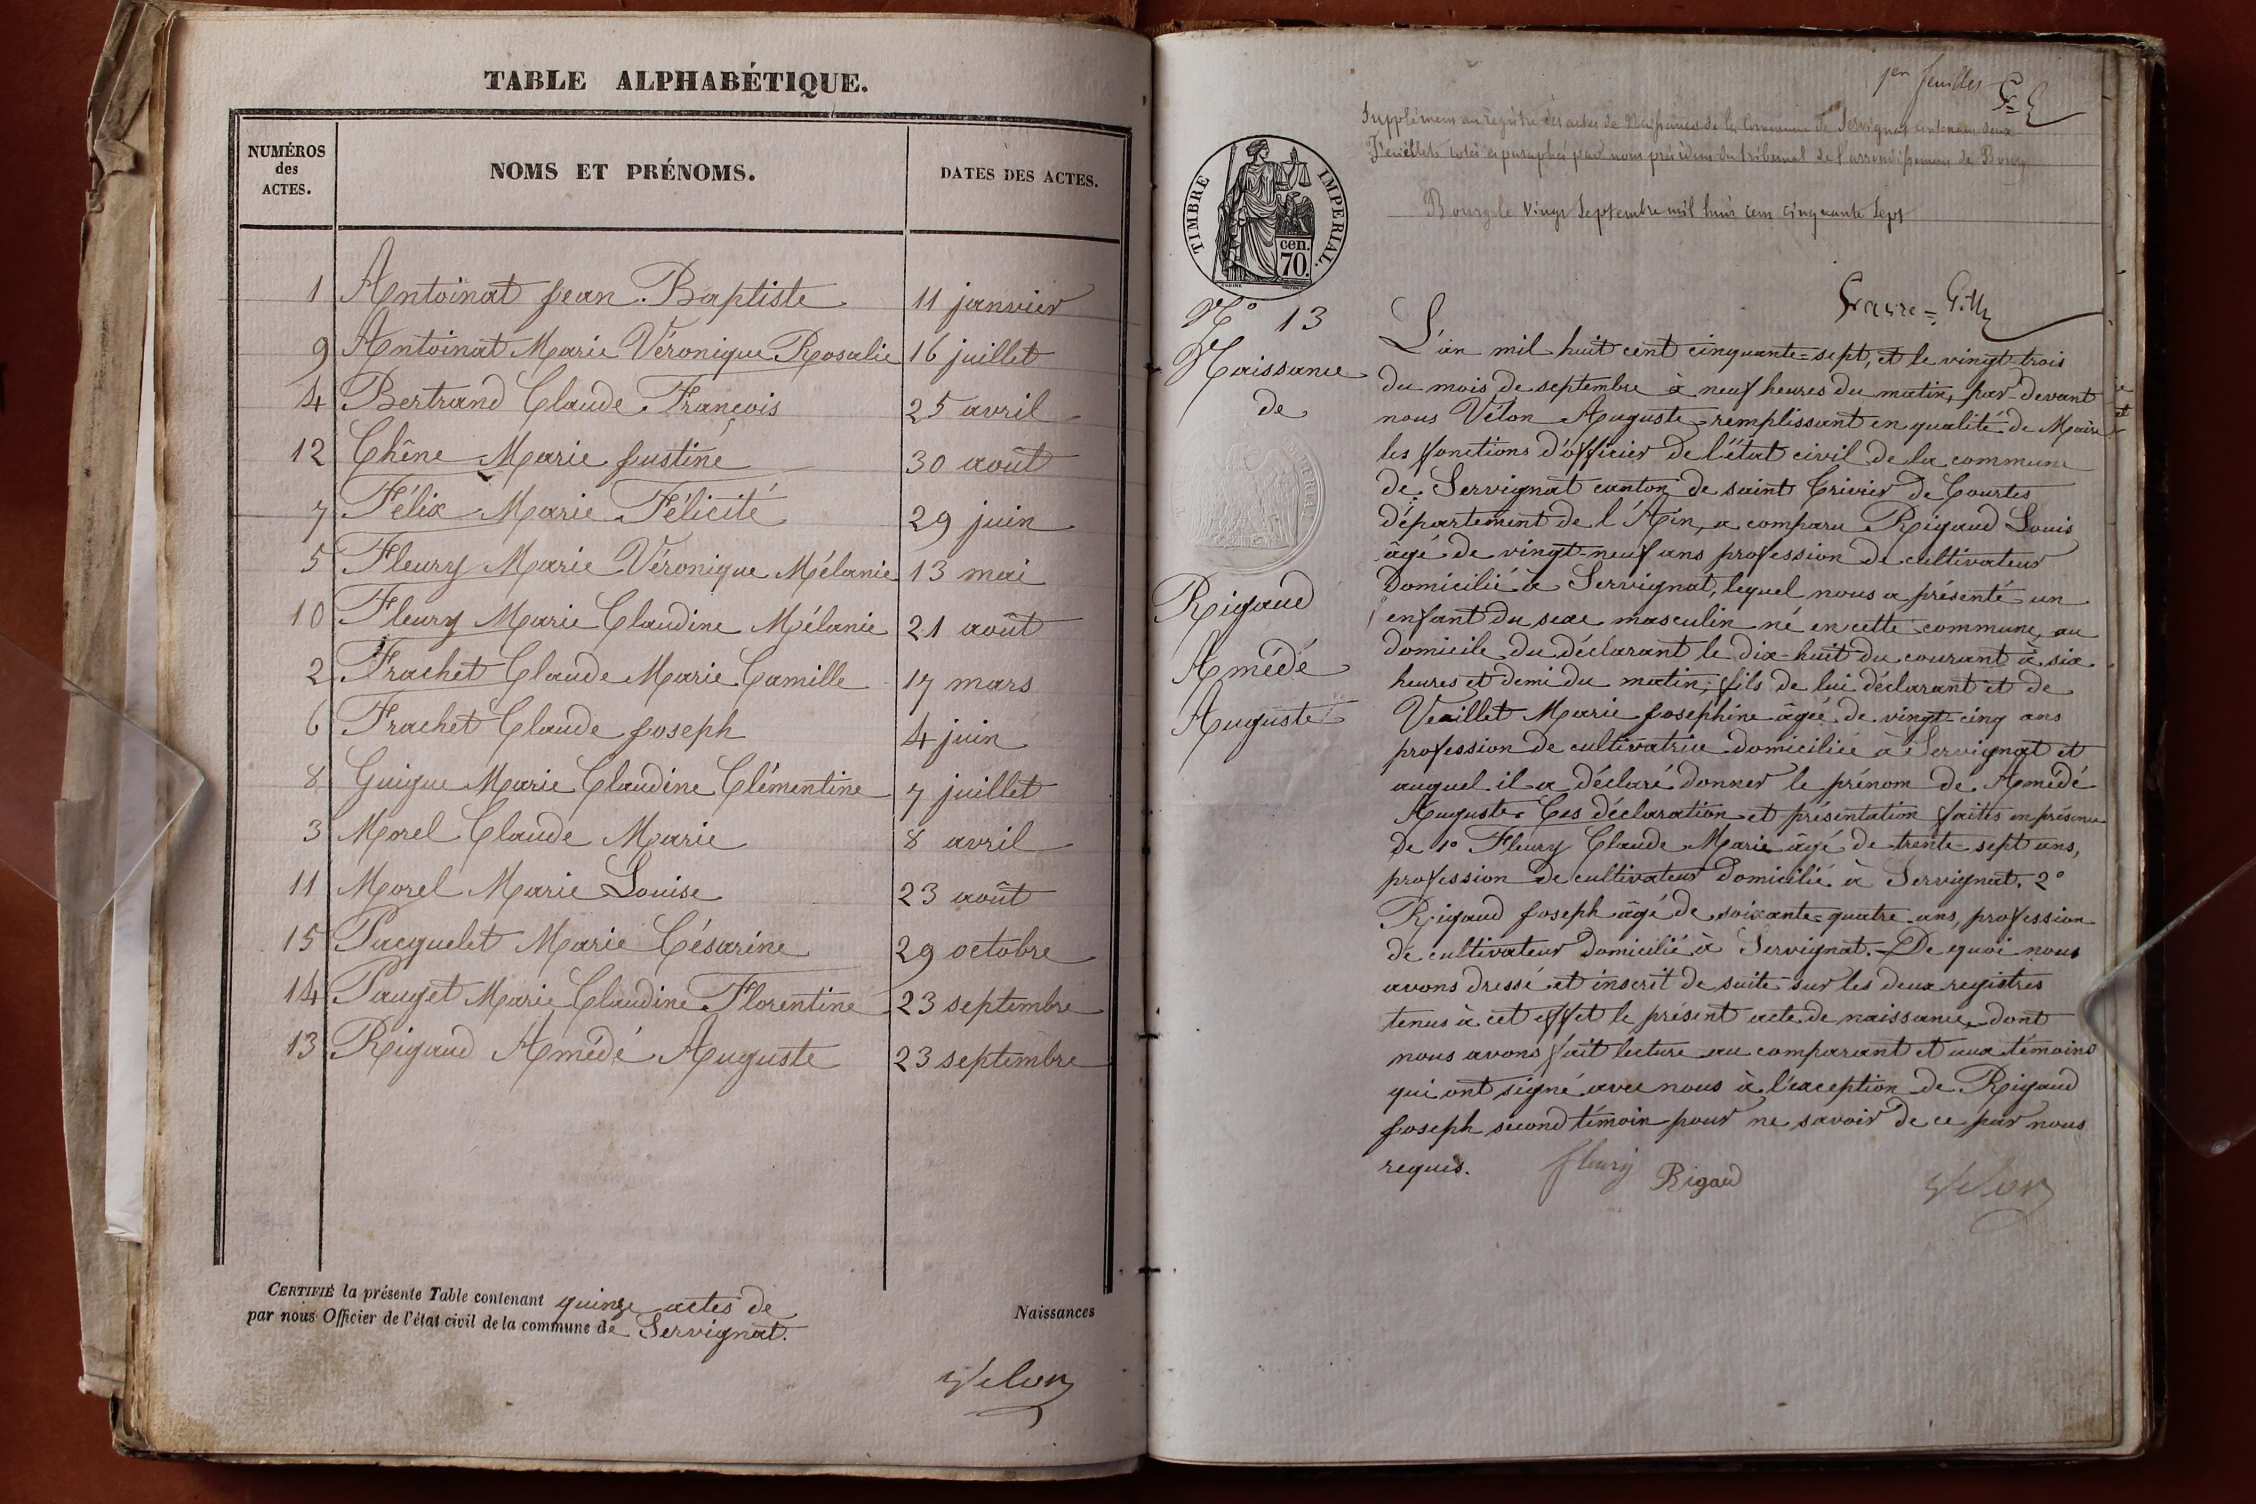 TABLE ALPHABÉTIQUE.
NUMÉROS des ACTES.
NOMS ET PRÉNOMS.
DATES DES ACTES.
1 Antoinat Jean-Baptiste 11 janvier
9 Antoinat Marie Véronique Rosalie 16 juillet
4 Bertrand Claude François 25 avril
12 Chêne Marie Justine 30 août
7 Félix Marie Félicité 29 juin
5 Fleury Marie Véronique Mélanie 13 mai
10 Fleury Marie Claudine Mélanie 21 août
2 Frachet Claude Marie Camille 17 mars
6 Frachet Claude Joseph 4 juin
8 Guigue Marie Claudine Clémentine 7 juillet
3 Morel Claude Marie 8 avril
11 Morel Marie Louise 23 août
15 Pacquelet Marie Césarine 29 octobre
14 Pauget Marie Claudine Florentine 23 septembre
13 Rigaud Amédé Auguste 23 septembre
CERTIFIÉ la présente Table contenant quinze actes de Naissances
par nous Officier de l'état civil de la commune de Servignat.
Velon
1er feuillet
Supplément au registre des actes de Naissances de la Commune de Servignat contenant deux
Feuillets cotés et paraphés par nous président du tribunal de l'arrondissement de Bourg
Bourg le vingt Septembre mil huit cent cinquante Sept
TIMBRE IMPERIAL.
cen.
70.
N° 13
Naissance
de
Rigaud
Amédé
Auguste
L'an mil huit cent cinquante-sept, et le vingt-trois
du mois de septembre à neuf heures du matin, par-devant
nous Vélon Auguste remplissant en qualité de Maire
les fonctions d'officier de l'état civil de la commune
de Servignat canton de saint Trivier de Courtes
département de l'Ain, a comparu Rigaud Louis
âgé de vingt-neuf ans profession de cultivateur
domicilié à Servignat, lequel nous a présenté un
enfant du sexe masculin né en cette commune, au
domicile du déclarant le dix-huit du courant à six
heures et demi du matin, fils de lui déclarant et de
Veuillet Marie Josephine âgée de vingt-cinq ans
profession de cultivatrice domiciliée à Servignat et
auquel il a déclaré donner le prénom de Amédé
Auguste. Ces déclaration et présentation faites en présence
de 1° Fleury Claude Marie âgé de trente-sept ans,
profession de cultivateur domicilié à Servignat. 2°
Rigaud Joseph âgé de soixante-quatre ans, profession
de cultivateur domicilié à Servignat. De quoi nous
avons dressé et inscrit de suite sur les deux registres
tenus à cet effet le présent acte de naissance, dont
nous avons fait lecture au comparant et aux témoins
qui ont signé avec nous à l'exception de Rigaud
Joseph second témoin pour ne savoir de ce par nous
requis.
fleury Rigaud Velon